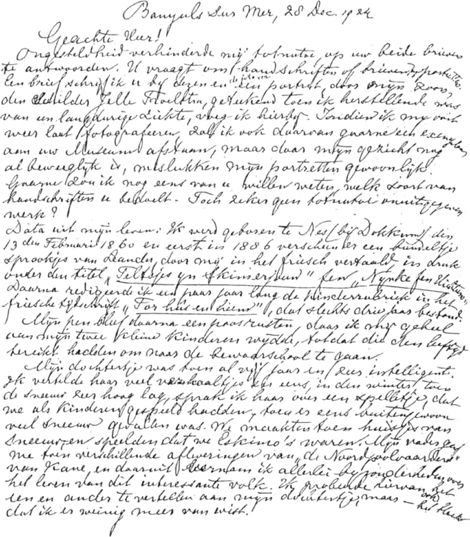 Banyuls sur Mer, 28 Dec. 1924
Geachte Heer!
Ongesteldheid verhinderde mij tot nu toe, op uw beide brieven
te antwoorden. U vraagt om handschriften of brieven, portretten.
Een brief schrijf ik u bij dezen en een portret, door mijn zoon,
den schilder Jelle Troelstra, geteekend toen ik herstellende was
van een langdurige ziekte, voeg ik hierbij. Indien ik mij ooit
weer laat fotografieren, zal ik ook daarvan gaarne een exemplaar
aan uw Museum afstaan, maar daar mijn gezicht nog
al bewegelijk is, mislukken mijn portretten gewoonlijk.
Gaarne zou ik nog eens van u willen weten, welk soort van
handschriften u bedoelt. Toch zeker geen tot nu toe onuitgegeven
werk?
Data uit mijn leven: Ik werd geboren te Nes bij Dokkum den
13 den Februari 1860 en eerst in 1886 verscheen er een bundeltje
sprookjes van Leander, door mij in het friesch vertaald, in druk
onder den titel, "Teltsjes yn skimerjoun" fen "Nynke fen Hichtum".
Daarna redigeerde ik een paar jaar lang de kinderrubriek in het
friesche tijdschrift "For hûs en hiem", dat slechts drie jaar bestond.
Mijn pen bleef daarna een poos rusten, daar ik mij geheel
aan mijn twee kleine kinderen wijdde, totdat die den leeftijd
bereikt hadden om naar de bewaarschool te gaan.
Mijn dochtertje was toen al vijf jaar en zeer intelligent.
Ik vertelde haar veel verhaaltjes en eens, in den winter, toen
de sneeuw zeer hoog lag, sprak ik haar over een spelletje, dat
we als kinderen gespeeld hadden, toen er eens buitengewoon
veel sneeuw gevallen was. Wij maakten toen huisjes van
sneeuw en speelden dat we Eskimo's waren. Mijn vader gaf
me toen verschillende afleveringen van "de Noordpoolvaarders"
van Kane, en daaruit vernam ik allerlei bijzonderheden over
het leven van dit interessante volk. Ik probeerde hiervan het
een en ander te vertellen aan mijn dochtertje, maar
dat ik er weinig meer van wist.